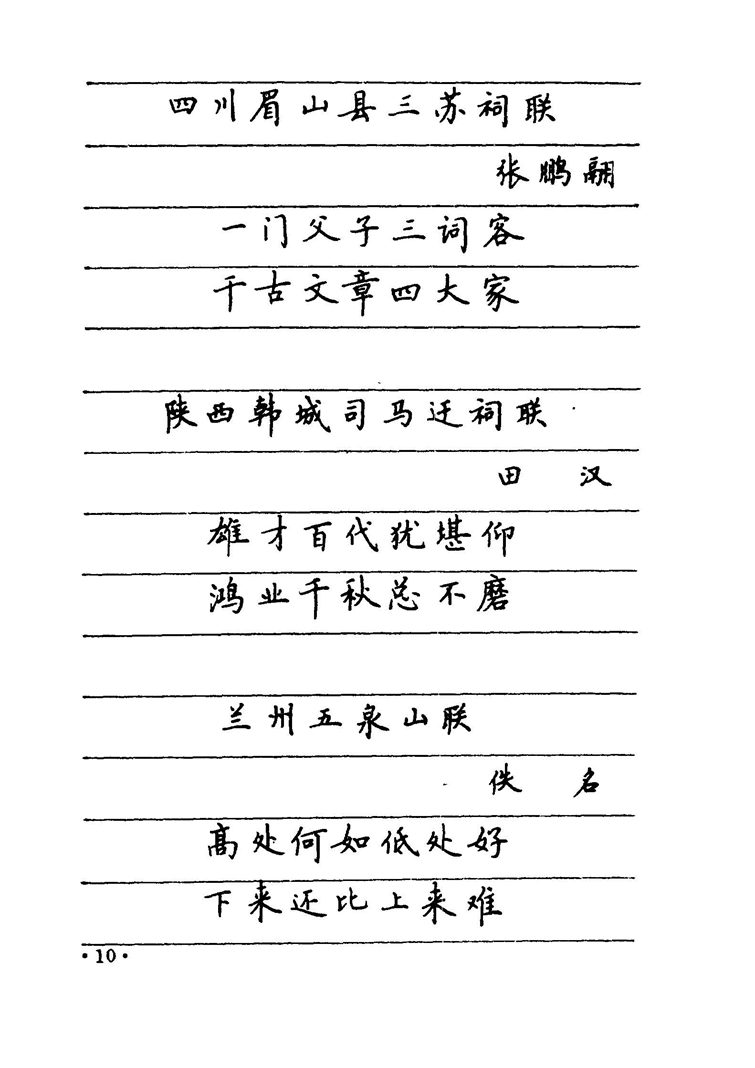 四川眉山县三苏祠联
张鹏翮
一门父子三词客
千古文章四大家
陕西韩城司马迁祠联
田 汉
雄才百代犹堪仰
鸿业千秋总不磨
兰州五泉山联
佚 名
高处何如低处好
下来还比上来难
·10·